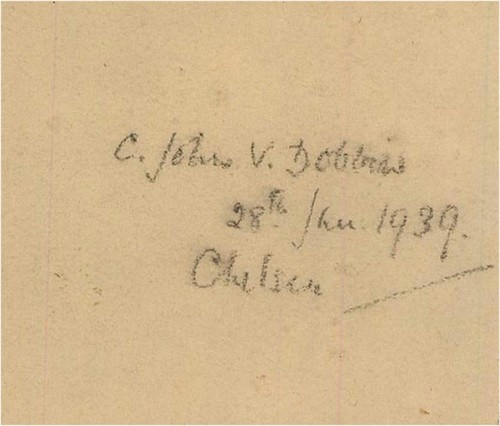 C. John V. Dobbin
28th Jan. 1939.
Chelsea